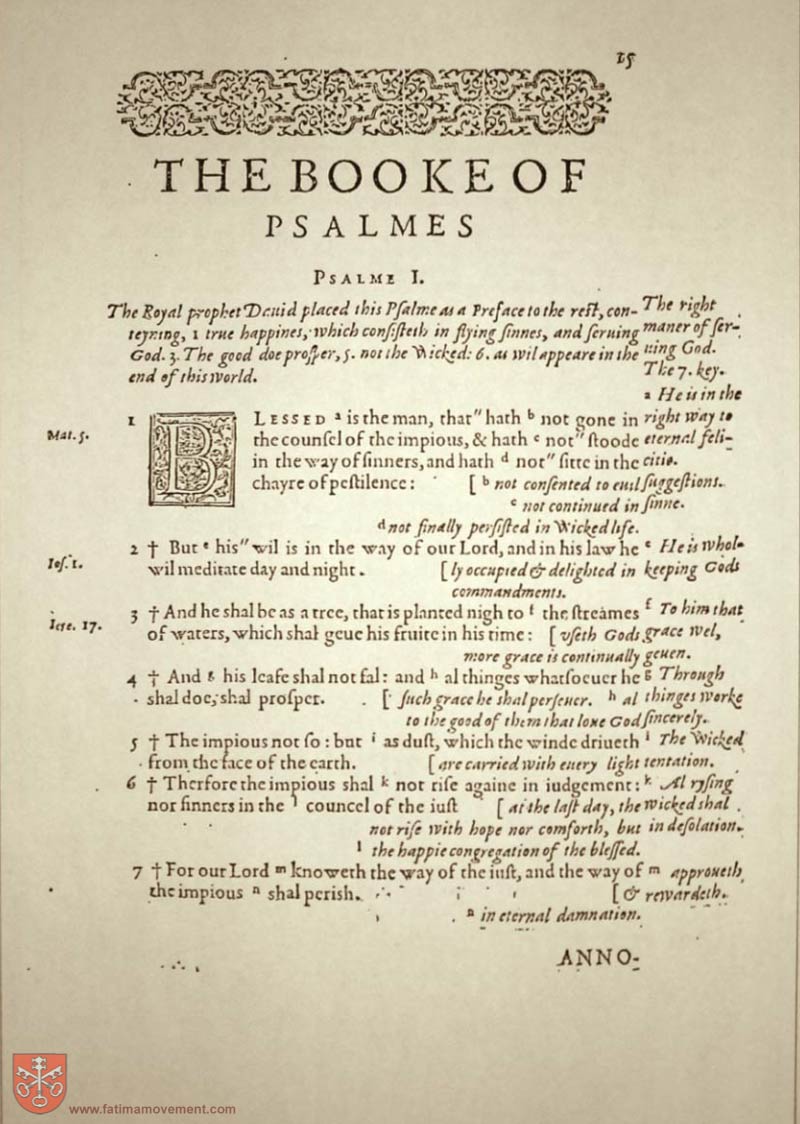 15
THE BOOKE OF
PSALMES
PSALME I.
The Royal prophet Dauid placed this Psalme as a Preface to the rest, con-
teyning, 1 true happines, which consisteth in flying sinnes, and seruing
God. 3. The good doe prosper, 5. not the Wicked: 6. as wil appeare in the
end of this world.
The right
maner of ser-
uing God.
The 7. key.
a He is in the
Mat. 5.
1 BLESSED a is the man, that" hath b not gone in right way to
the counsel of the impious, & hath c not" stoode eternal feli-
in the way of sinners, and hath d not" sitte in the citie.
chayre of pestilence: [ b not consented to euil suggestions.
c not continued in sinne.
d not finally persisted in Wicked life.
2 † But e his" wil is in the way of our Lord, and in his law he e He is whol-
Ios. 1.
wil meditate day and night. [ ly occupied & delighted in keeping Gods
commandments.
3 † And he shal be as a tree, that is planted nigh to f the streames f To him that
Iere. 17.
of waters, which shal geue his fruite in his time: [ vseth Gods grace wel,
more grace is continually geuen.
4 † And g his leafe shal not fal: and h al thinges whatsoeuer he g Through
shal doe, shal prosper. [ such grace he shal perseuer. h al thinges worke
to the good of them that loue God sincerely.
5 † The impious not so: but i as dust, which the winde driueth i The Wicked
from the face of the earth. [ are carried with euery light tentation.
6 † Therfore the impious shal k not rise againe in iudgement: k Al rysing
nor sinners in the l councel of the iust [ at the last day, the wicked shal
not rise with hope nor comforth, but in desolation.
l the happie congregation of the blessed.
7 † For our Lord m knoweth the way of the iust, and the way of m approueth
the impious n shal perish. [ & rewardeth.
n in eternal damnation.
ANNO-
www.fatimamovement.com